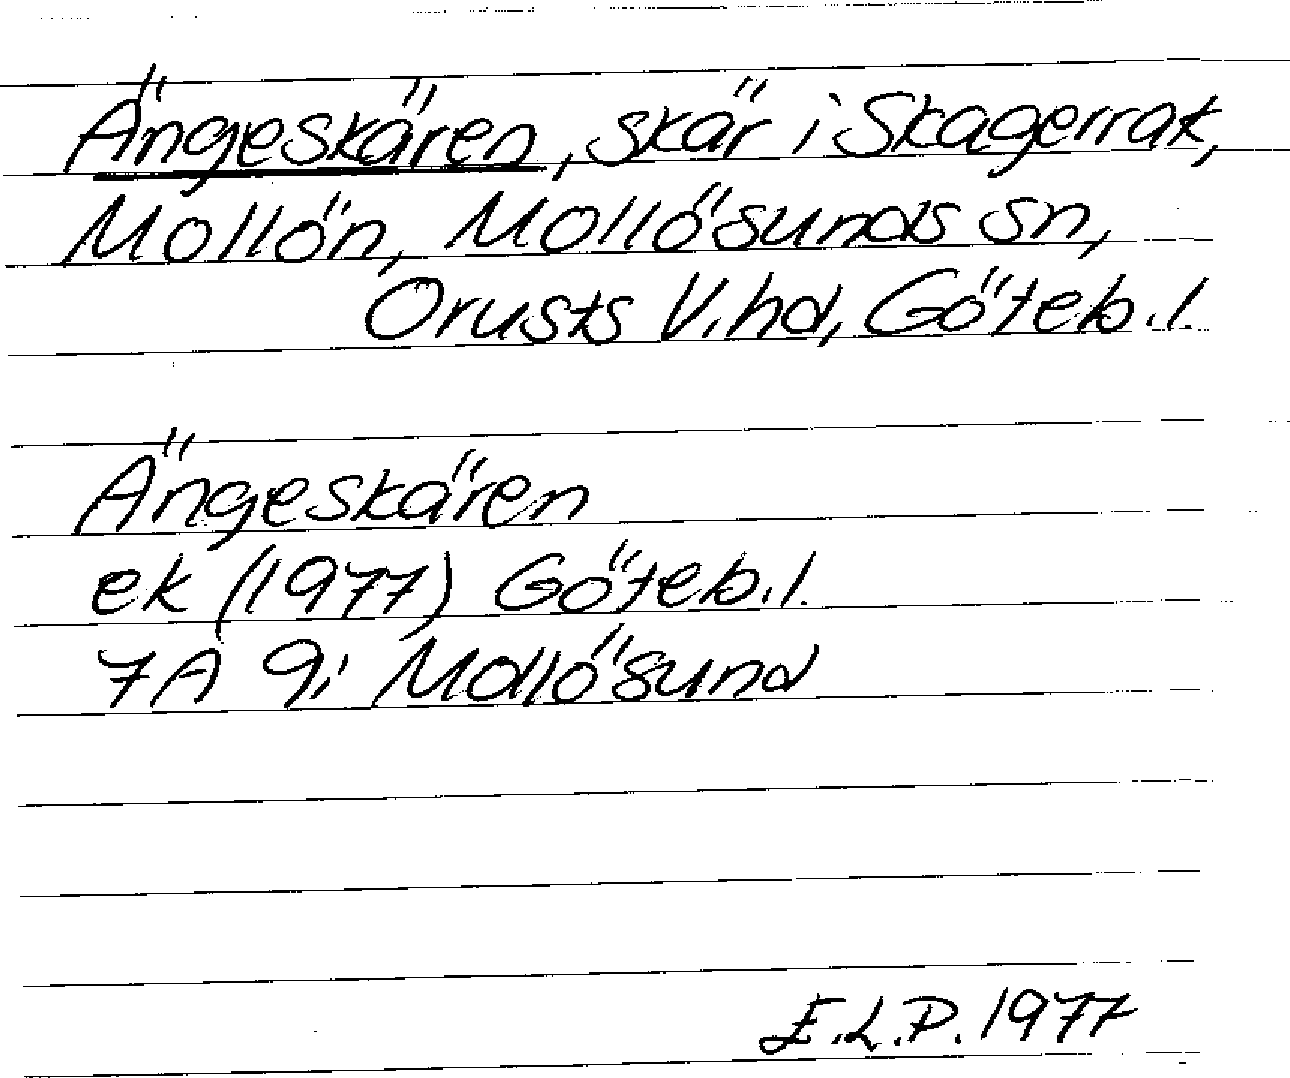 Ängeskären, skär i Skagerrak,
Mollön, Mollösunds sn,
Orusts V. hd, Göteb. l.
Ängeskären
ek (1977) Göteb. l.
7A 9i Mollösund
E.L.P. 1977